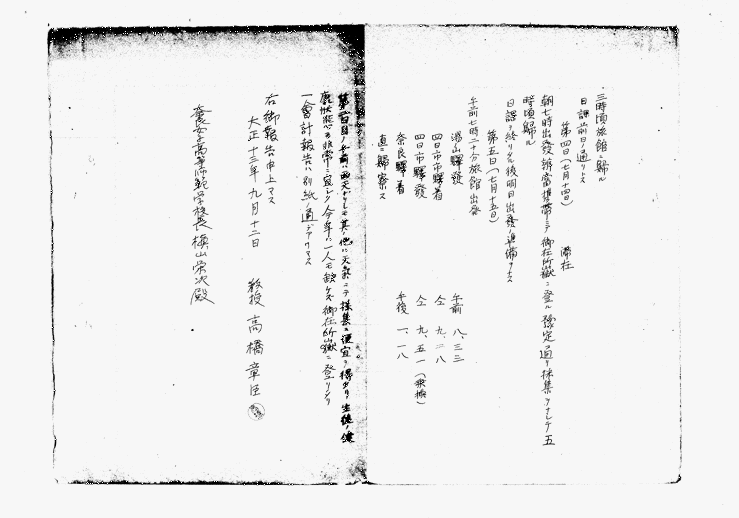 三時頃旅館ニ歸ル
日課前日ノ通リトス
第四日(七月十四日) 滞在
朝七時出發辨當携帶ニテ御在所嶽ニ登ル 豫定ノ通リ採集ヲナシテ五
時頃歸ル
日課ヲ終リタル後明日出發ノ準備ヲナス
第五日(七月十五日)
午前七時二十分旅館出發
湯山驛發 午前 八、三三
四日市驛着 仝 九、二八
四日市驛發 仝 九、五一(乘換)
奈良驛着 午後 一、一八
直ニ歸寮ス
第一日ノ午前ハ雨天ナリシモ其ノ他ハ天氣ニテ採集ニ便宜ヲ得タリ 生徒ノ健
康狀態モ非常ニ宜シク今年ハ一人モ缺ケズ御在所嶽ニ登リタリ
一會計報告ハ別紙ノ通デアリマス
右御報告申上マス
大正十三年九月十二日
教授 高橋章臣
奈良女子高等師範学校長 槇山栄次殿